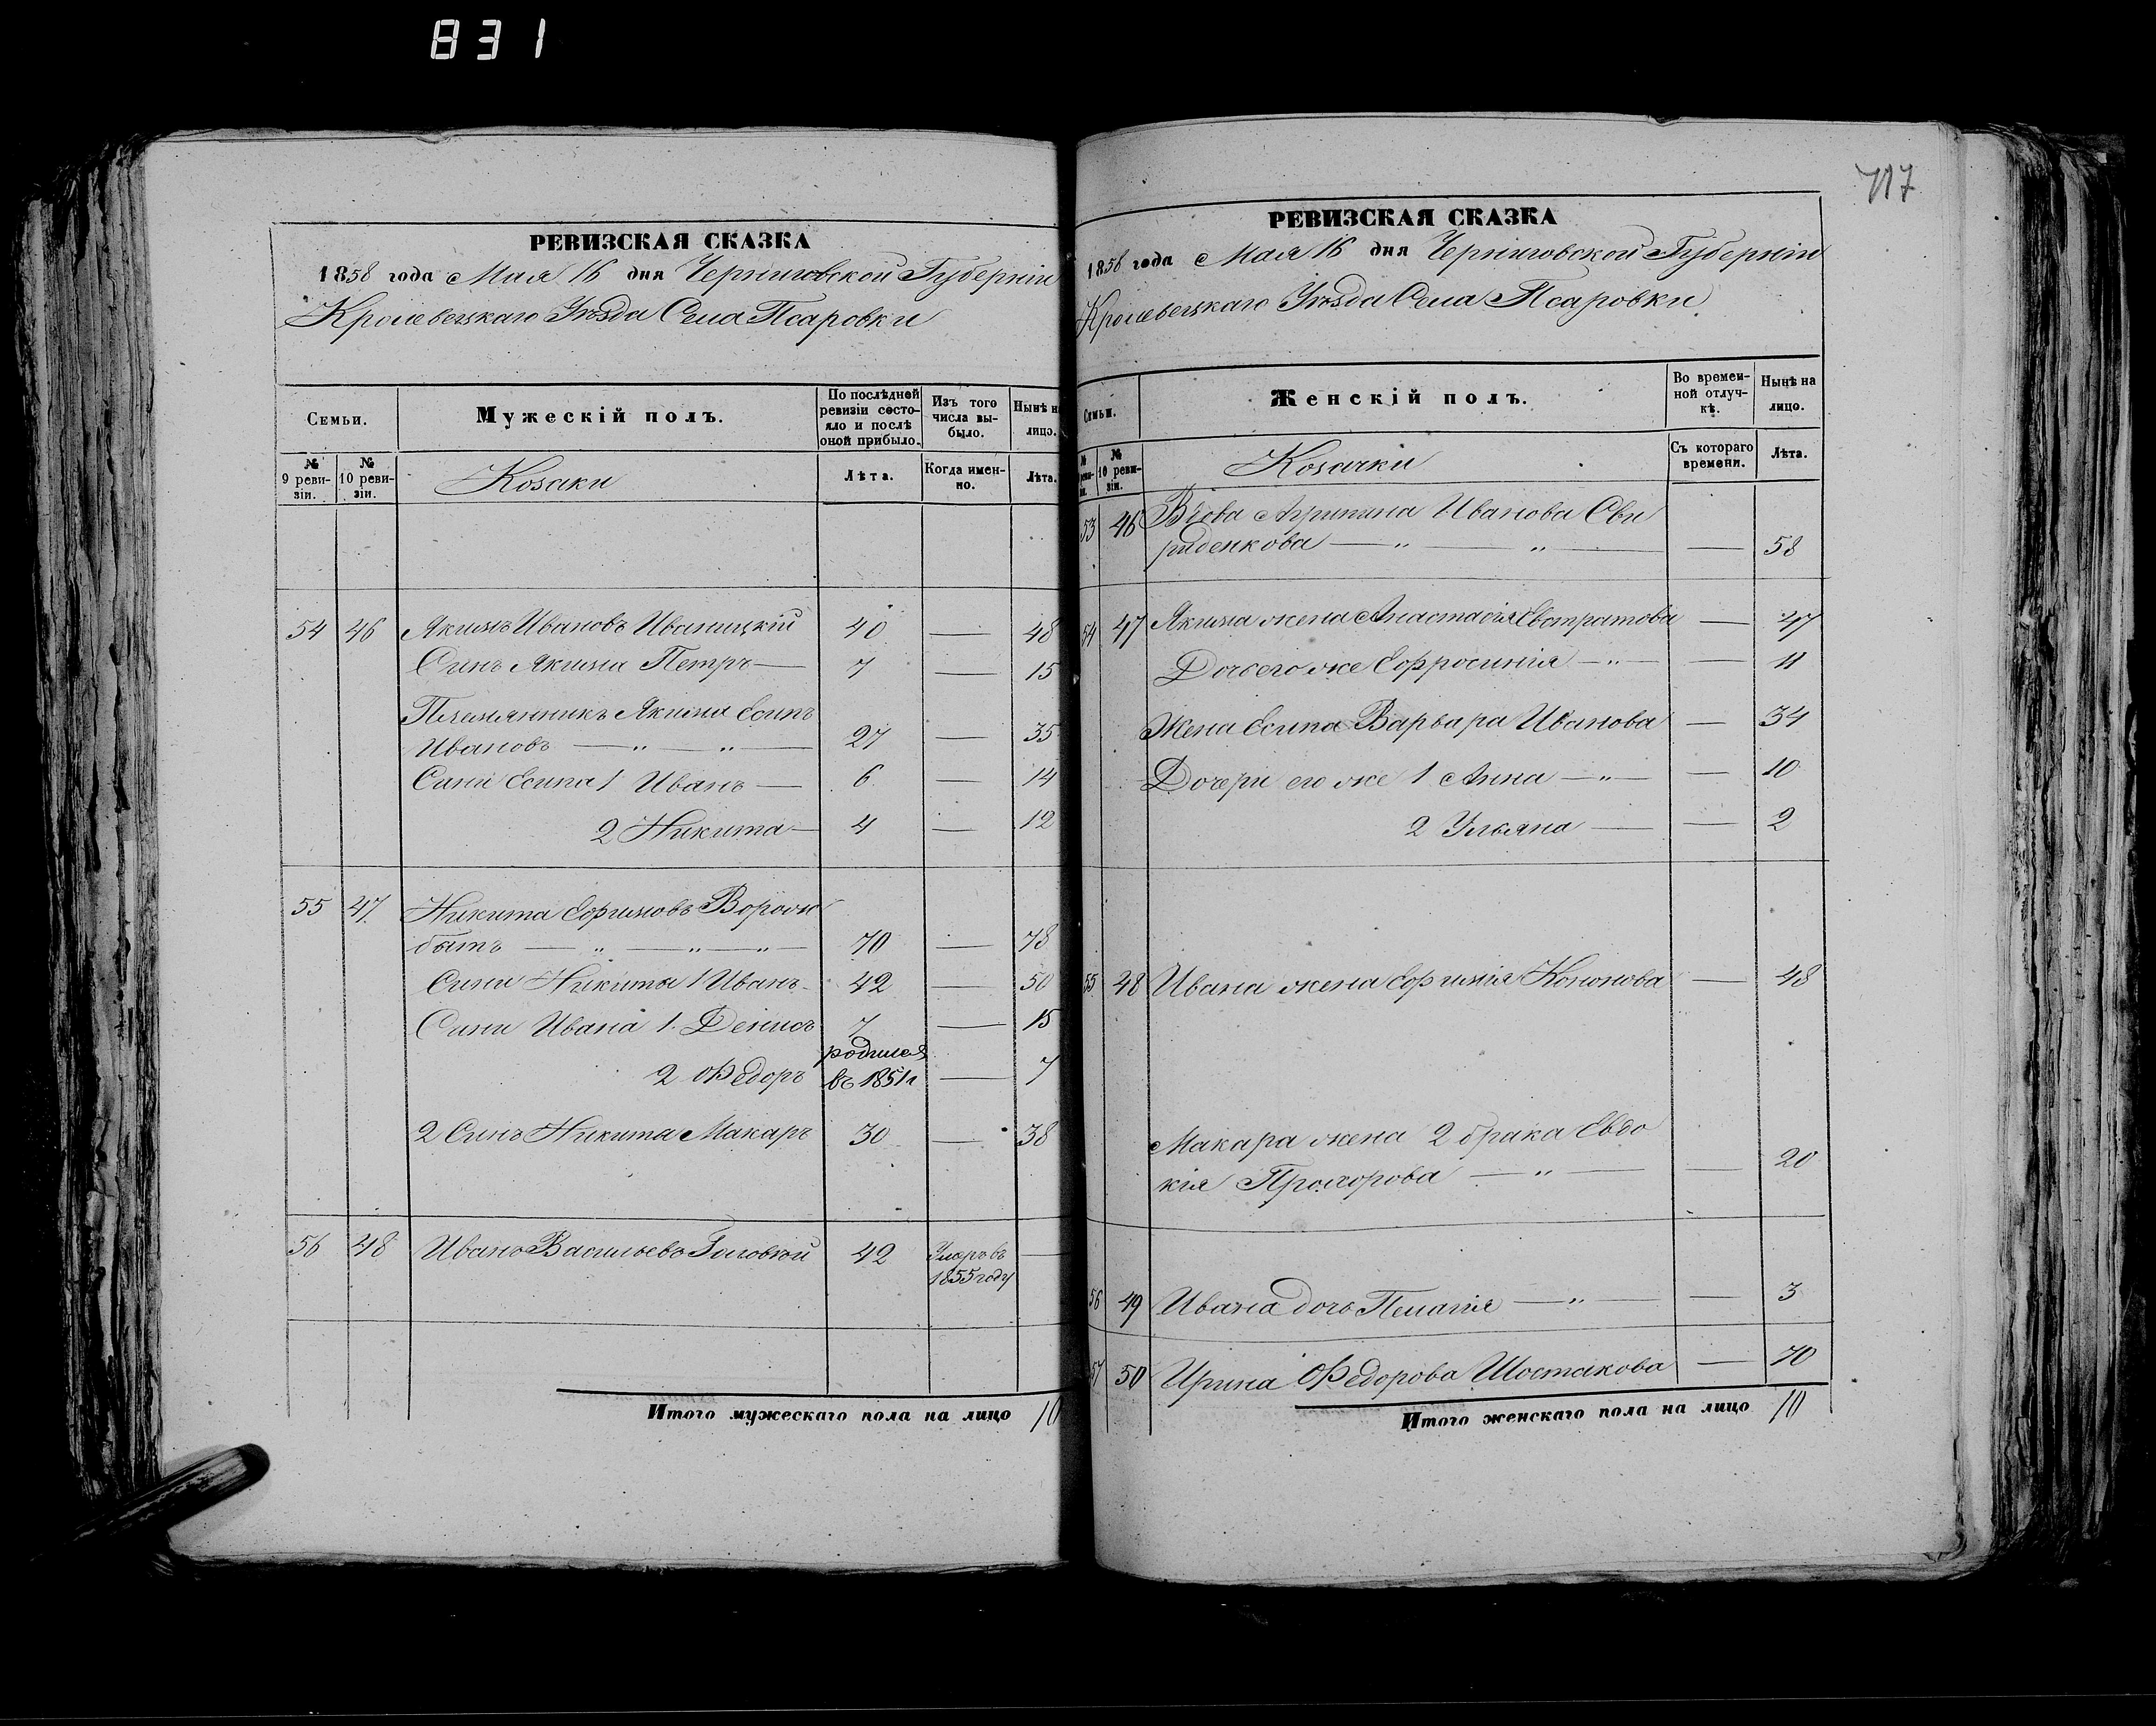 831
717
РЕВИЗСКАЯ СКАЗКА
1858 года Мая 16 дня Черниговской Губерніи
Кролевецкаго Уѣзда Села Псаровки
Семьи.
Мужескій полъ.
По послѣдней ревизіи состояло и послѣ оной прибыло.
Изъ того числа выбыло.
Нынѣ на лицо.
№ 9 ревизіи.
№ 10 ревизіи.
Козаки
Лѣта.
Когда именно.
Лѣта.
54 46 Якимъ Ивановъ Иваницкій 40 — 48
Синъ Якима Петръ — 7 — 15
Племянникъ Якима Есипъ
Ивановъ — „ — „ — 27 — 35
Сини Есипа 1 Иванъ — 6 — 14
2 Никита — 4 — 12
55 47 Никита Ефимовъ Ворож
битъ — „ — „ — „ — 70 — 78
Сини Никиты 1 Иванъ 42 — 50
Сини Ивана 1. Денисъ 7 — 15
родился
2 Федоръ въ 1851г — 7
2 Синъ Никита Макаръ 30 — 38
56 48 Иванъ Васильевъ 42 Умеръ въ —
1855 году
Итого мужескаго пола на лицо 10
РЕВИЗСКАЯ СКАЗКА
1858 года Мая 16 дня Черниговской Губерніи
Кролевецкаго Уѣзда Села Псаровки
Семьи.
Женскій полъ.
Во временной отлучкѣ.
Нынѣ на лицо.
№ 10 ревизіи.
Козачки
Съ котораго времени.
Лѣта.
53 46 Вдова Агрипина Иванова Сви
риденкова — „ — „ — — 58
54 47 Якима жена Анастасія Евстратова — 47
Дочь его же Ефросинія — „ — — 11
Жена Есипа Варвара Иванова — 34
Дочери его же 1 Анна — „ — — 10
2 Ульяна — — 2
55 48 Ивана жена Ефимія Кононова — 48
Макара жена 2 брака Евдо
кія Прохорова — „ — — 20
56 49 Ивана дочь Пелагія — „ — — 3
57 50 Ирина Федорова Шостакова — 70
Итого женскаго пола на лицо 10